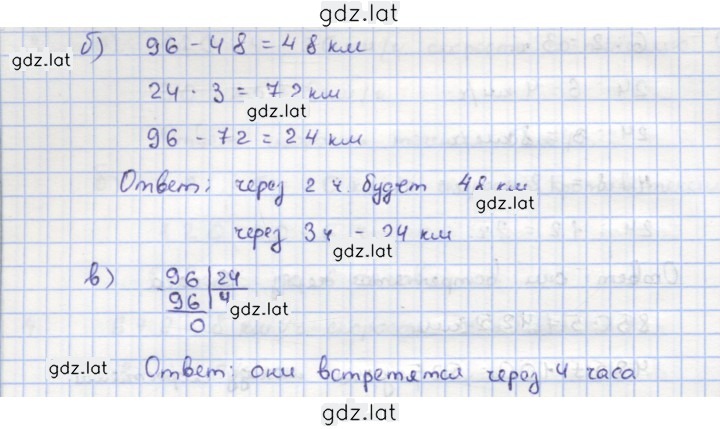 gdz.lat
б) 96 - 48 = 48 км
gdz.lat
24 · 3 = 72 км
gdz.lat
96 - 72 = 24 км
Ответ: через 2 ч. будет 48 км
gdz.lat
через 3ч - 24 км
gdz.lat
в) 96 24
96 4
gdz.lat
0
gdz.lat
Ответ: они встретятся через 4 часа
gdz.lat